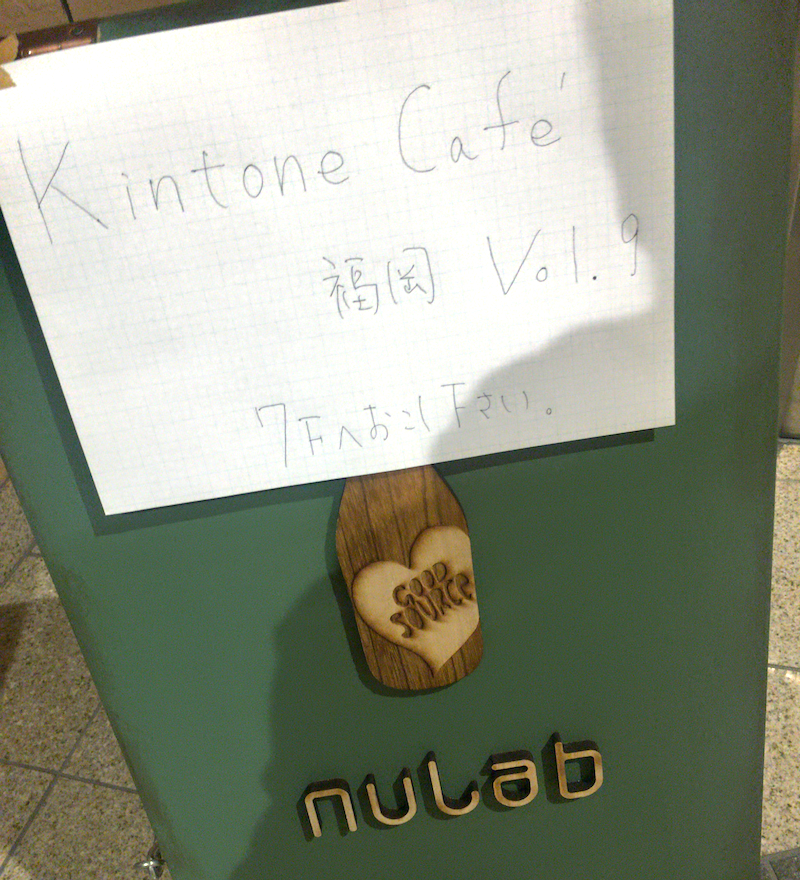 Kintone Café
福岡 Vol.9
7Fへおこし下さい。
GOOD
SOURCE
nulab